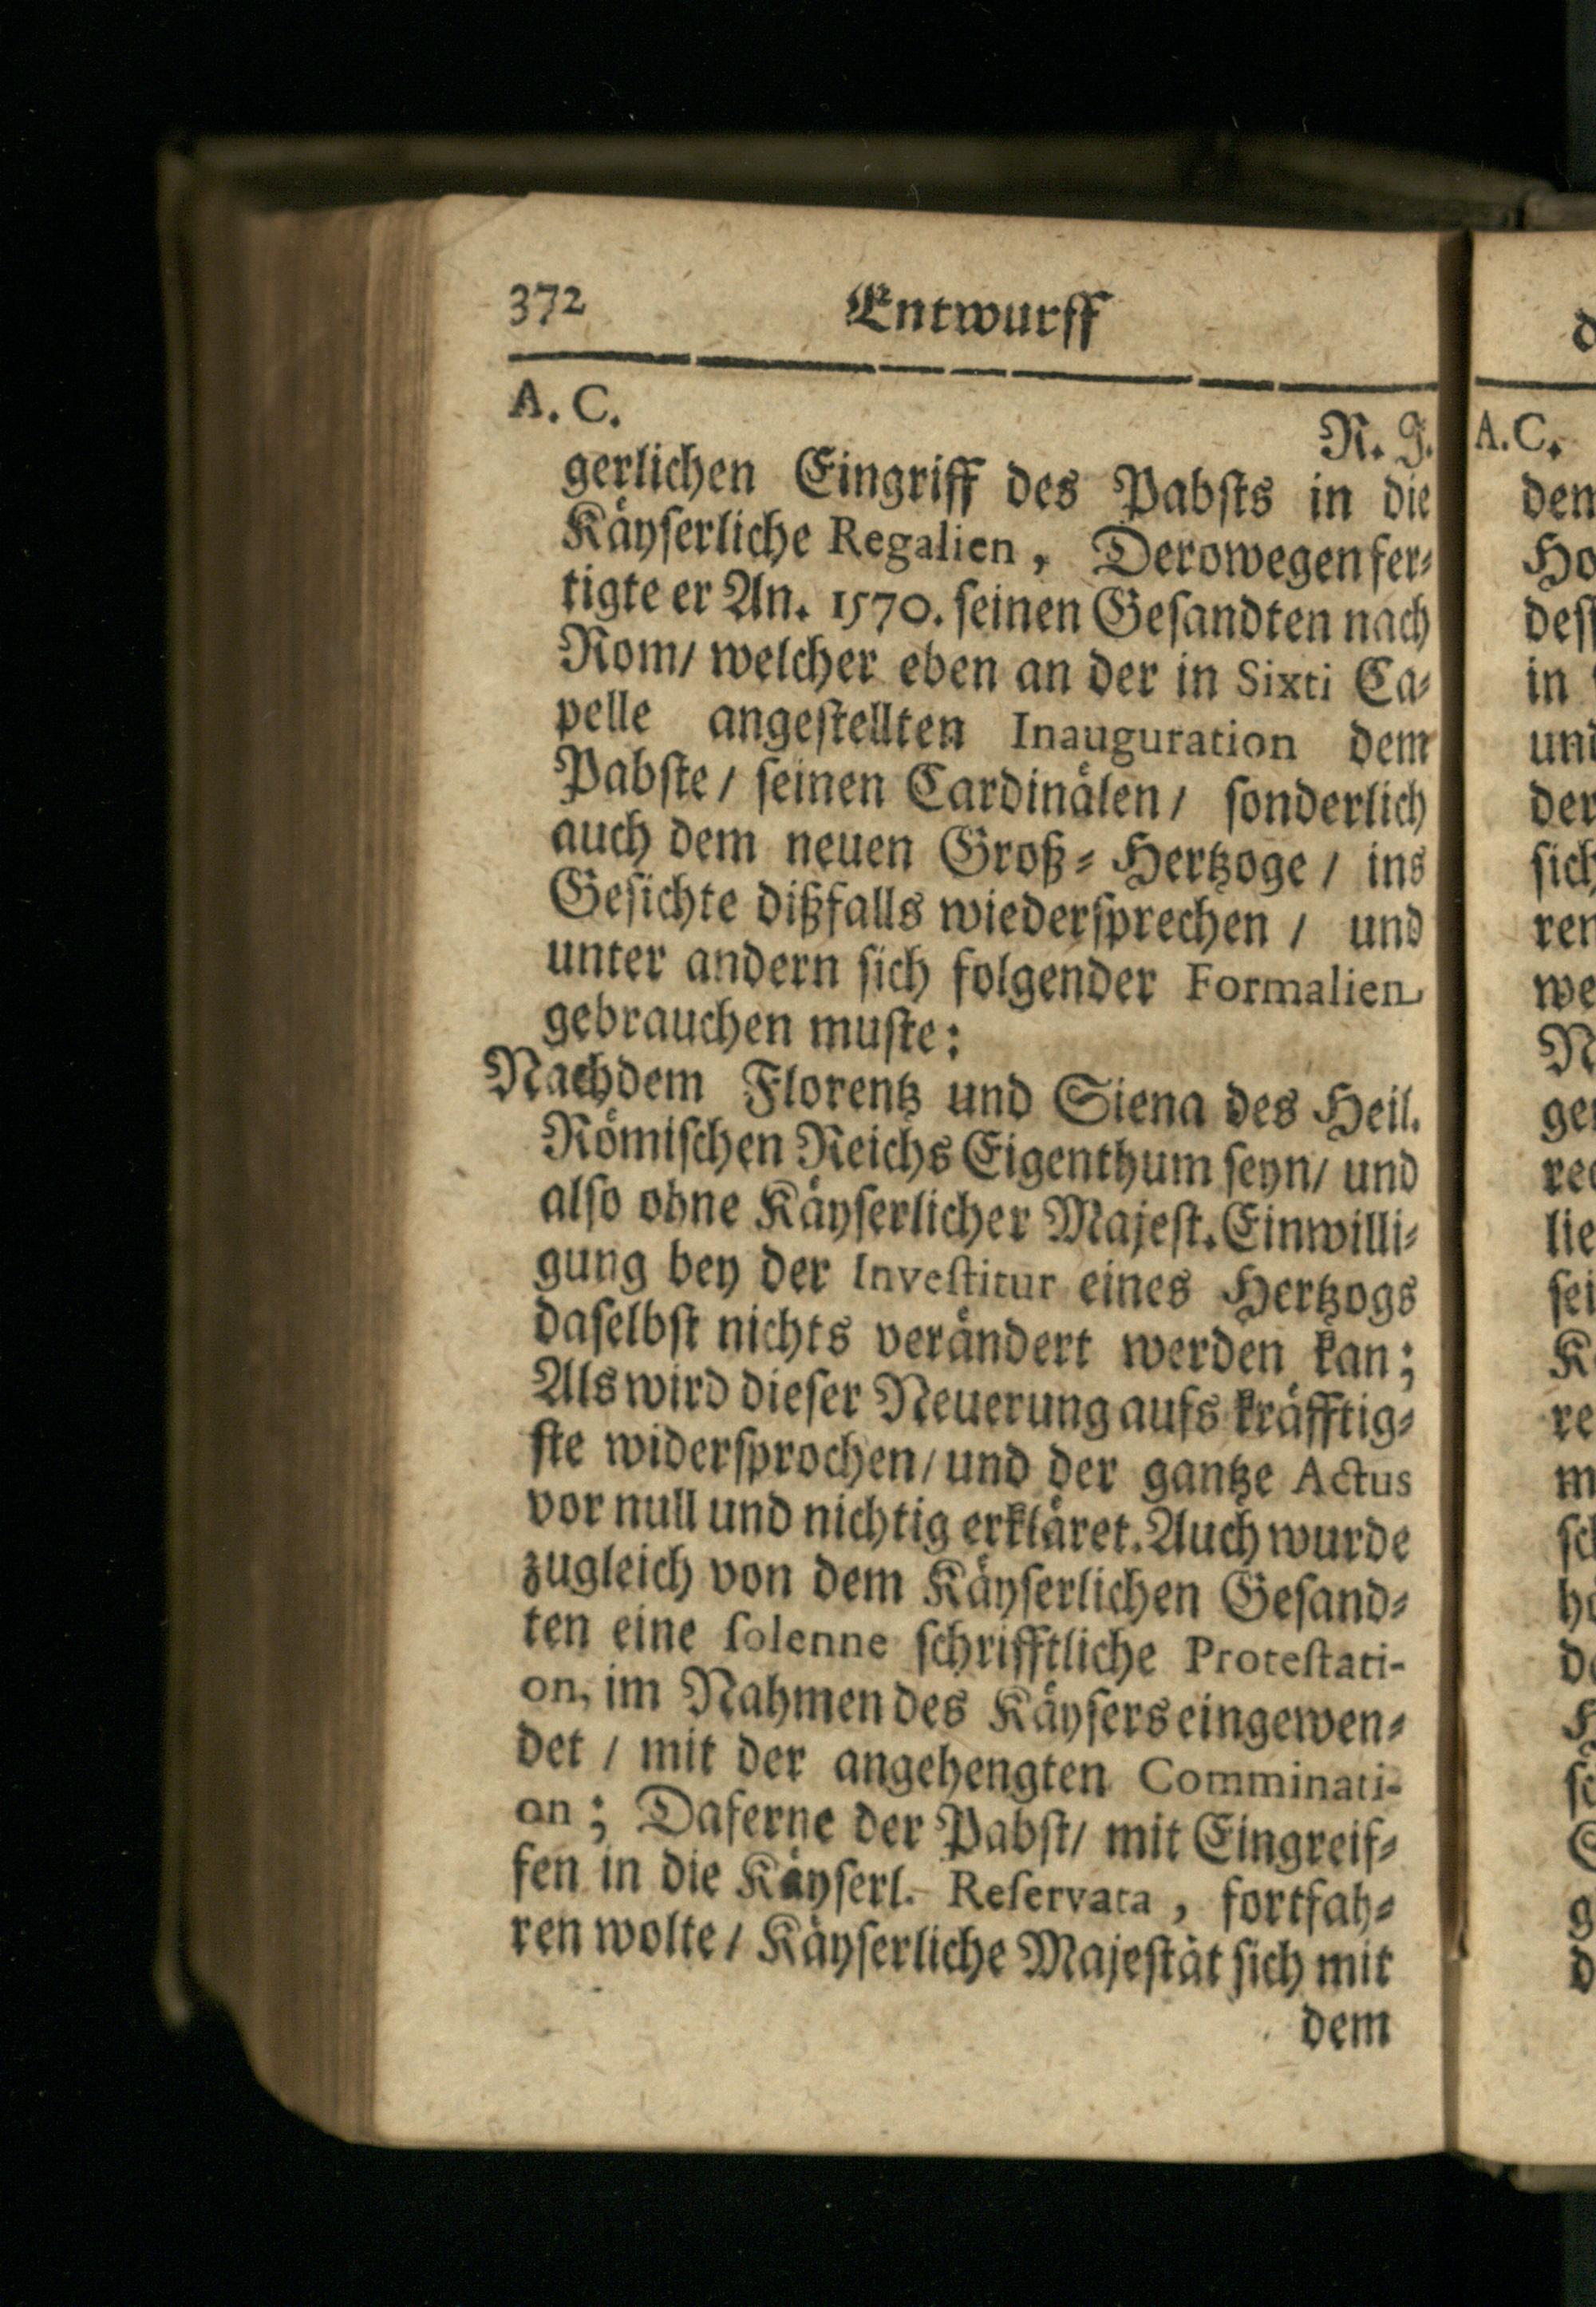 372 Entwurff
A. C. R. J.
gerlichen Eingriff des Pabsts in die
Käyserliche Regalien, Derowegen fer-
tigte er An. 1570. seinen Gesandten nach
Rom/ welcher eben an der in Sixti Ca-
pelle angestellten Inauguration dem
Pabste / seinen Cardinälen / sonderlich
auch dem neuen Groß-Hertzoge / ins
Gesichte dißfalls wiedersprechen / und
unter andern sich folgender Formalien
gebrauchen muste:
Nachdem Florentz und Siena des Heil.
Römischen Reichs Eigenthum seyn/ und
also ohne Käyserlicher Majest. Einwilli-
gung bey der Investitur eines Hertzogs
daselbst nichts verändert werden kan;
Als wird dieser Neuerung aufs kräfftig-
ste widersprochen/ und der gantze Actus
vor null und nichtig erkläret. Auch wurde
zugleich von dem Käyserlichen Gesand-
ten eine solenne schrifftliche Protestati-
on, im Nahmen des Käysers eingewen-
det / mit der angehengten Comminati-
on; Daferne der Pabst/ mit Eingreif-
fen in die Käyserl. Reservata, fortfah-
ren wolte / Käyserliche Majestät sich mit
dem
A. C.
den
in
und
der
sich
ren
we